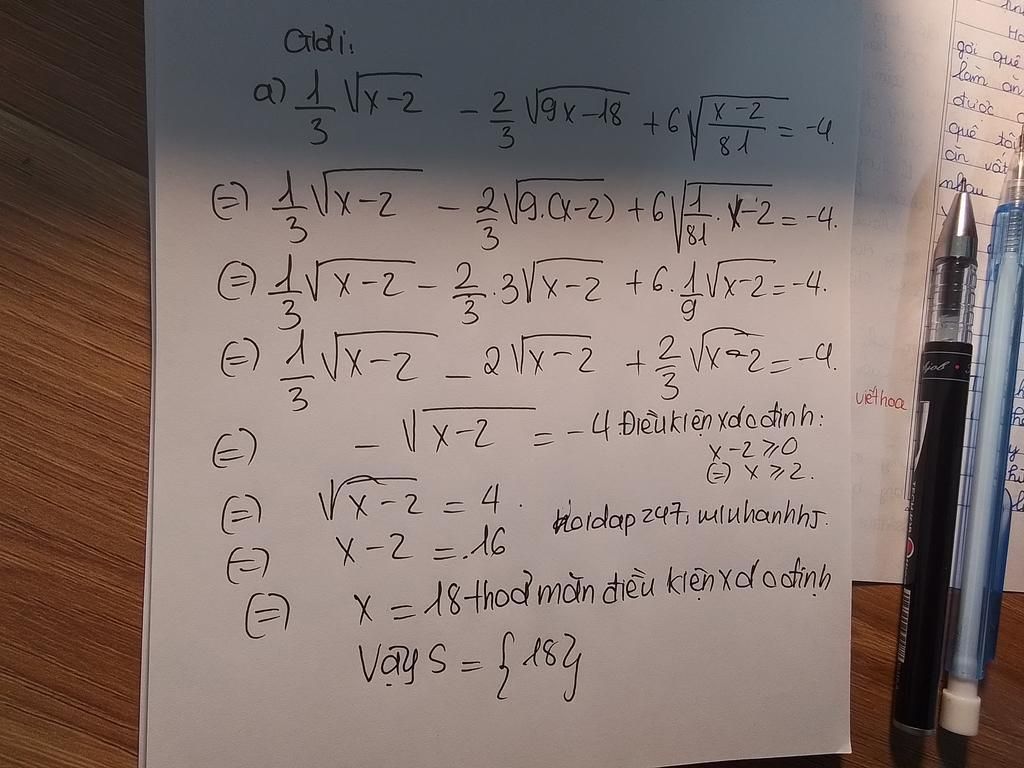 Giải:
a) 1/3 √(x-2) - 2/3 √(9x-18) + 6√((x-2)/81) = -4.
(=) 1/3 √(x-2) - 2/3 √(9.(x-2)) + 6√(1/81 . x-2) = -4.
(=) 1/3 √(x-2) - 2/3 . 3√(x-2) + 6 . 1/9 √(x-2) = -4.
(=) 1/3 √(x-2) - 2√(x-2) + 2/3 √(x-2) = -4.
(=) - √(x-2) = -4. Điều kiện xác định:
x-2 ≥ 0
(=) x ≥ 2.
(=) √(x-2) = 4.
(=) x-2 = 16
(=) x = 18 thoả mãn điều kiện xác định
Vậy S = {18}
viết hoa
gói quê
làm ăn
được
quê tôi
ăn vặt
nhau